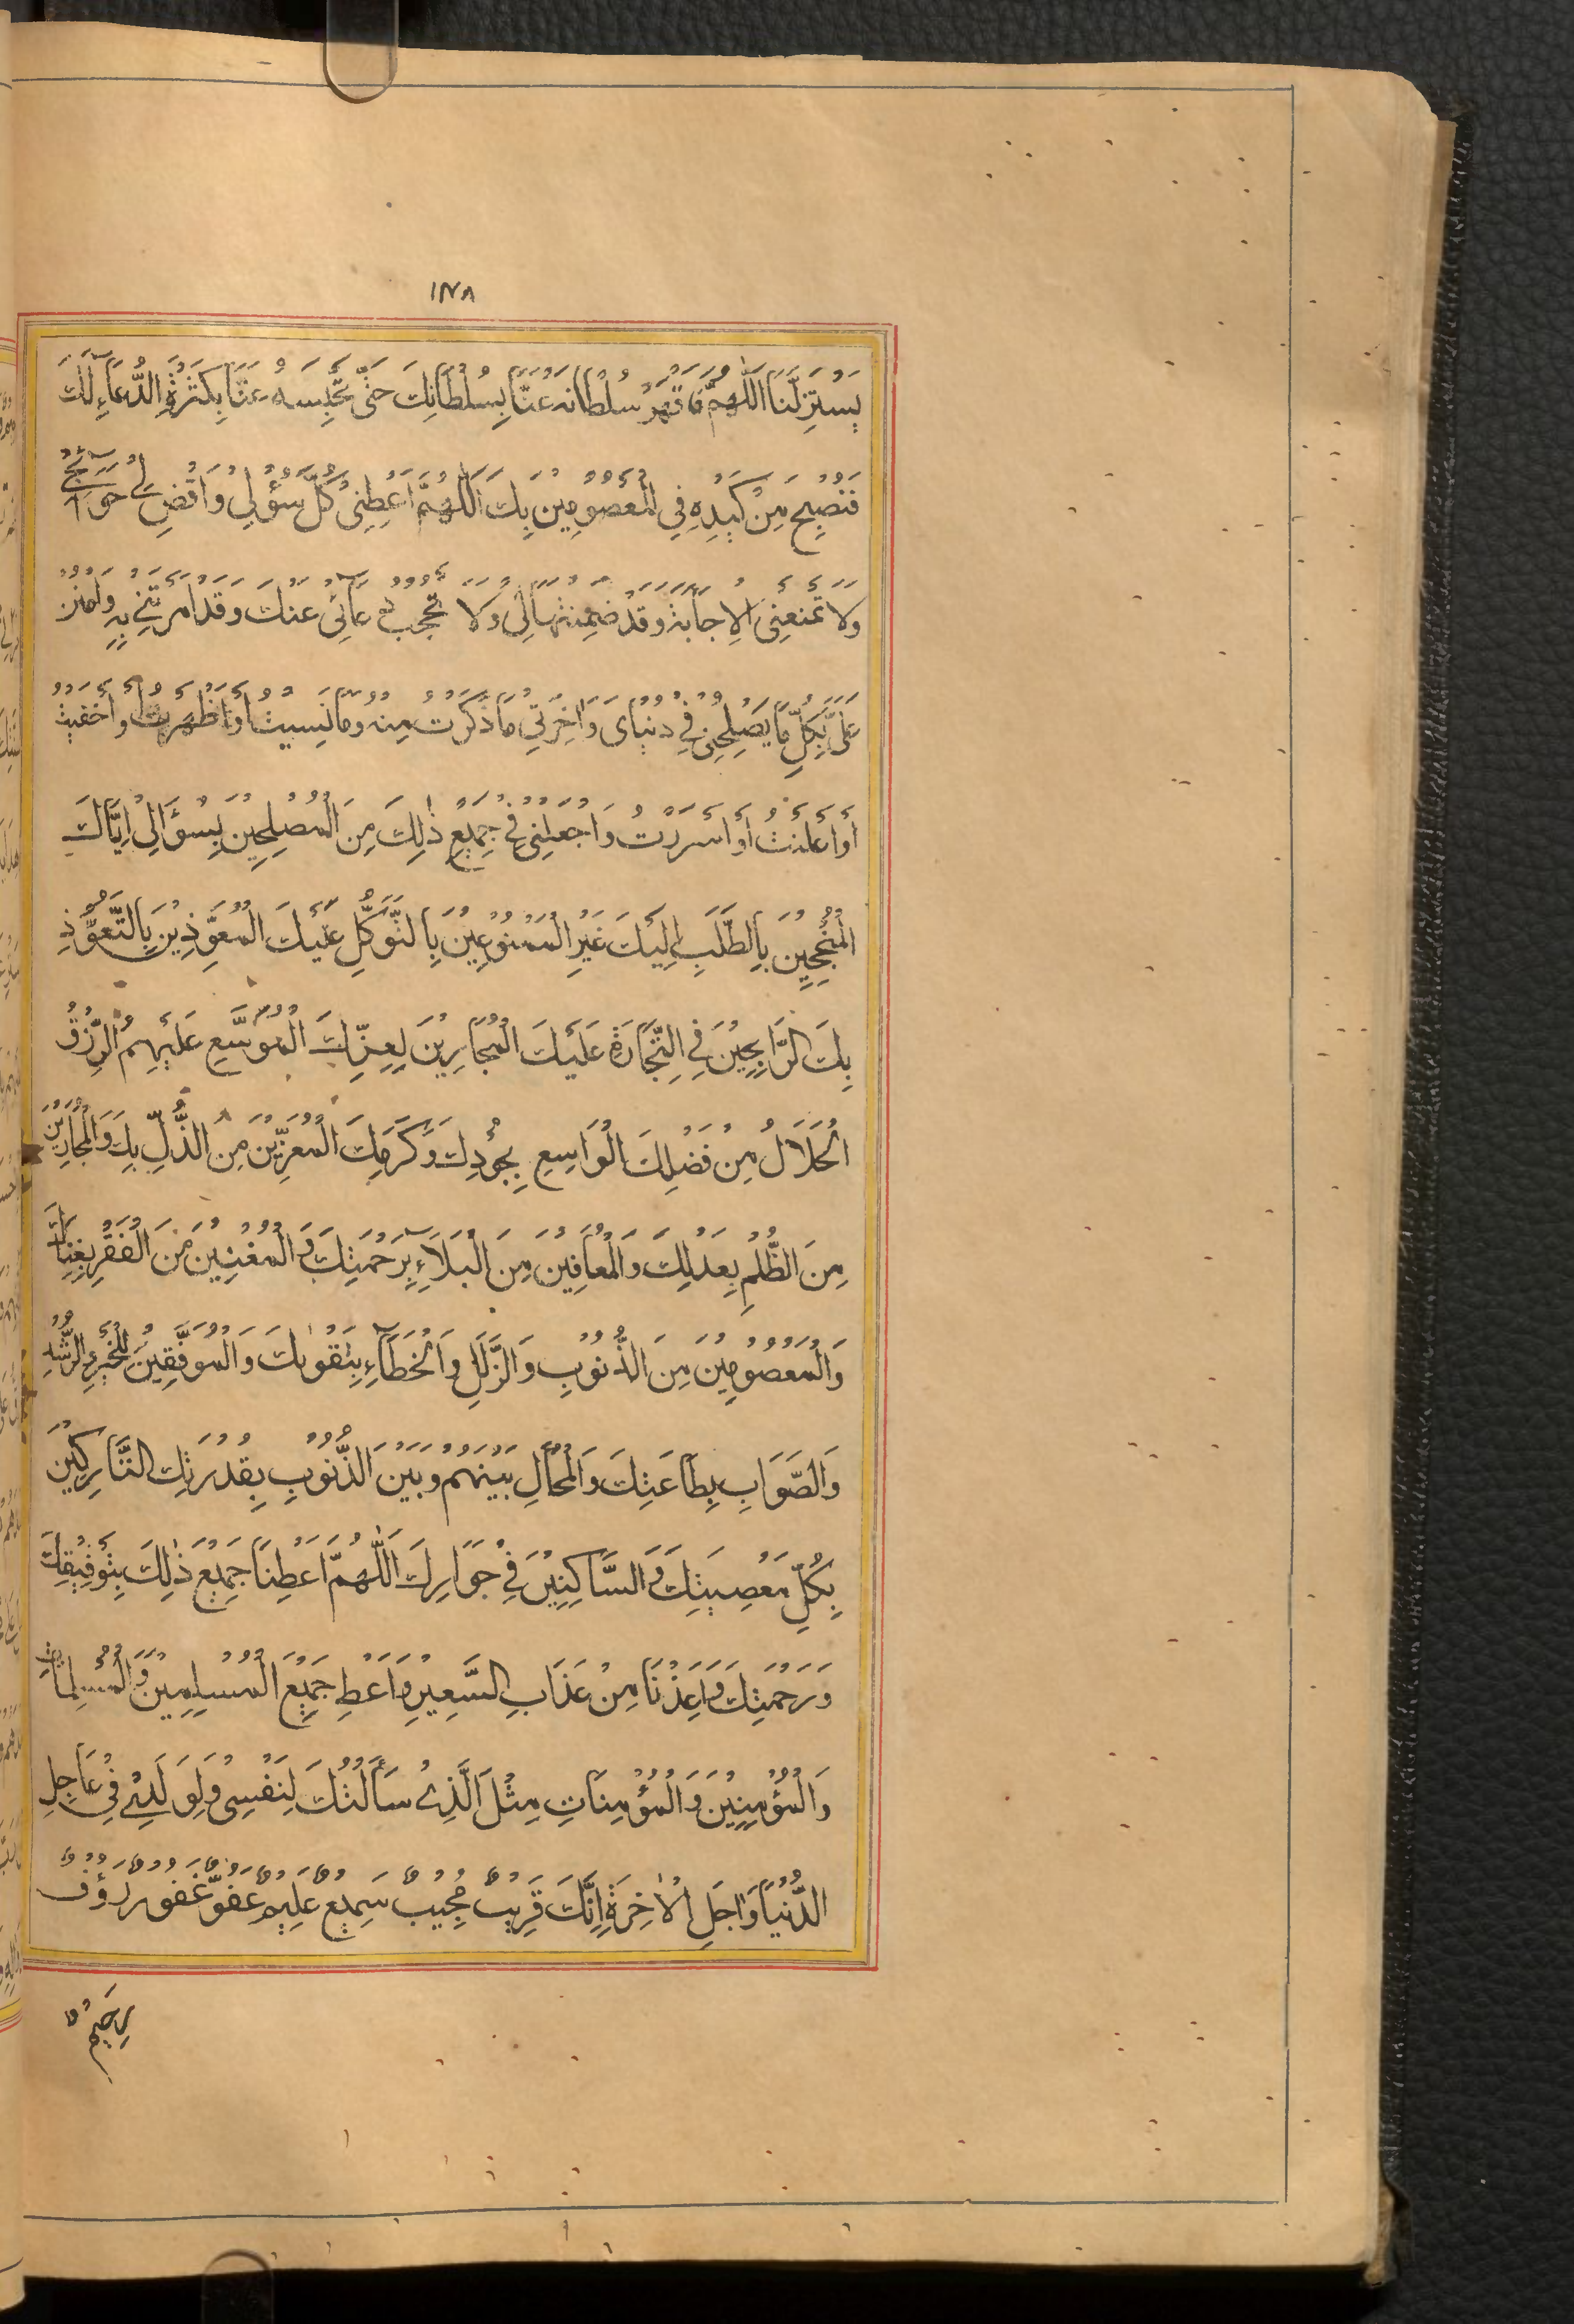 ١٢٨
يَسْتَزِلَّنَا اَللّٰهُمَّ فَاقْهَرْ سُلْطَانَهُ عَنَّا بِسُلْطَانِكَ حَتّٰى تَحْبِسَهُ عَنَّا بِكَثْرَةِ الدُّعَآءِ لَكَ
فَنُصْبِحَ مِنْ كَيْدِهِ فِي الْمَعْصُوْمِيْنَ بِكَ اَللّٰهُمَّ اَعْطِنِيْ كُلَّ سُؤْلِيْ وَاقْضِ لِيْ حَوَآئِجِيْ
وَلَا تَمْنَعْنِيْ الْاِجَابَةَ وَقَدْ ضَمِنْتَهَا لِيْ وَلَا تَحْجُبْ دُعَآئِيْ عَنْكَ وَقَدْ اَمَرْتَنِيْ بِهِ وَامْنُنْ
عَلَيَّ بِكُلِّ مَا يُصْلِحُنِيْ فِيْ دُنْيَايَ وَاٰخِرَتِيْ مَا ذَكَرْتُ مِنْهُ وَمَا نَسِيْتُ اَوْ اَظْهَرْتُ اَوْ اَخْفَيْتُ
اَوْ اَعْلَنْتُ اَوْ اَسْرَرْتُ وَاجْعَلْنِيْ فِيْ جَمِيْعِ ذٰلِكَ مِنَ الْمُصْلِحِيْنَ بِسُؤَالِيْ اِيَّاكَ
الْمُنْجِحِيْنَ بِالطَّلَبِ اِلَيْكَ غَيْرِ الْمَمْنُوْعِيْنَ بِالتَّوَكُّلِ عَلَيْكَ الْمُعَوَّذِيْنَ بِالتَّعَوُّذِ
بِكَ الرَّابِحِيْنَ فِي التِّجَارَةِ عَلَيْكَ الْمُجَارِيْنَ بِعِزِّكَ الْمُوَسَّعِ عَلَيْهِمُ الرِّزْقُ
الْحَلَالُ مِنْ فَضْلِكَ الْوَاسِعِ بِجُوْدِكَ وَكَرَمِكَ الْمُعَزِّيْنَ مِنَ الذُّلِّ بِكَ وَالْمُجَارِيْنَ
مِنَ الظُّلْمِ بِعَدْلِكَ وَالْمُعَافِيْنَ مِنَ الْبَلَآءِ بِرَحْمَتِكَ وَالْمُغْنِيْنَ مِنَ الْفَقْرِ بِغِنَاكَ
وَالْمَعْصُوْمِيْنَ مِنَ الذُّنُوْبِ وَالزَّلَلِ وَالْخَطَآءِ بِتَقْوٰىكَ وَالْمُوَفَّقِيْنَ لِلْخَيْرِ وَالرُّشْدِ
وَالصَّوَابِ بِطَاعَتِكَ وَالْمُحَالِ بَيْنَهُمْ وَبَيْنَ الذُّنُوْبِ بِقُدْرَتِكَ التَّارِكِيْنَ
بِكُلِّ مَعْصِيَتِكَ وَالسَّاكِنِيْنَ فِيْ جِوَارِكَ اَللّٰهُمَّ اَعْطِنَا جَمِيْعَ ذٰلِكَ بِتَوْفِيْقِكَ
وَرَحْمَتِكَ وَاَعِذْنَا مِنْ عَذَابِ السَّعِيْرِ وَاَعْطِ جَمِيْعَ الْمُسْلِمِيْنَ وَالْمُسْلِمَاتِ
وَالْمُؤْمِنِيْنَ وَالْمُؤْمِنَاتِ مِثْلَ الَّذِيْ سَأَلْتُكَ لِنَفْسِيْ وَلِوَلَدِيْ فِيْ عَاجِلِ
الدُّنْيَا وَاٰجِلِ الْاٰخِرَةِ اِنَّكَ قَرِيْبٌ مُجِيْبٌ سَمِيْعٌ عَلِيْمٌ عَفُوٌّ غَفُوْرٌ رَؤُفٌ
رَحِيْمٌ